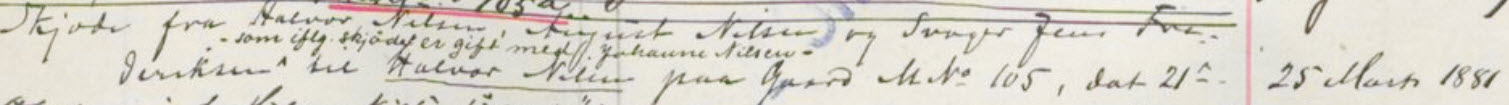 105a
Skjøde fra Halvor Nilsen, August Nilsen og Svoger Jens Fre-
- som iflg. skjødet er gift med Johanne Nilsen -
deriksen til Halvor Nilsen paa Gaard M No 105, dat 21n. 25 Marts 1881